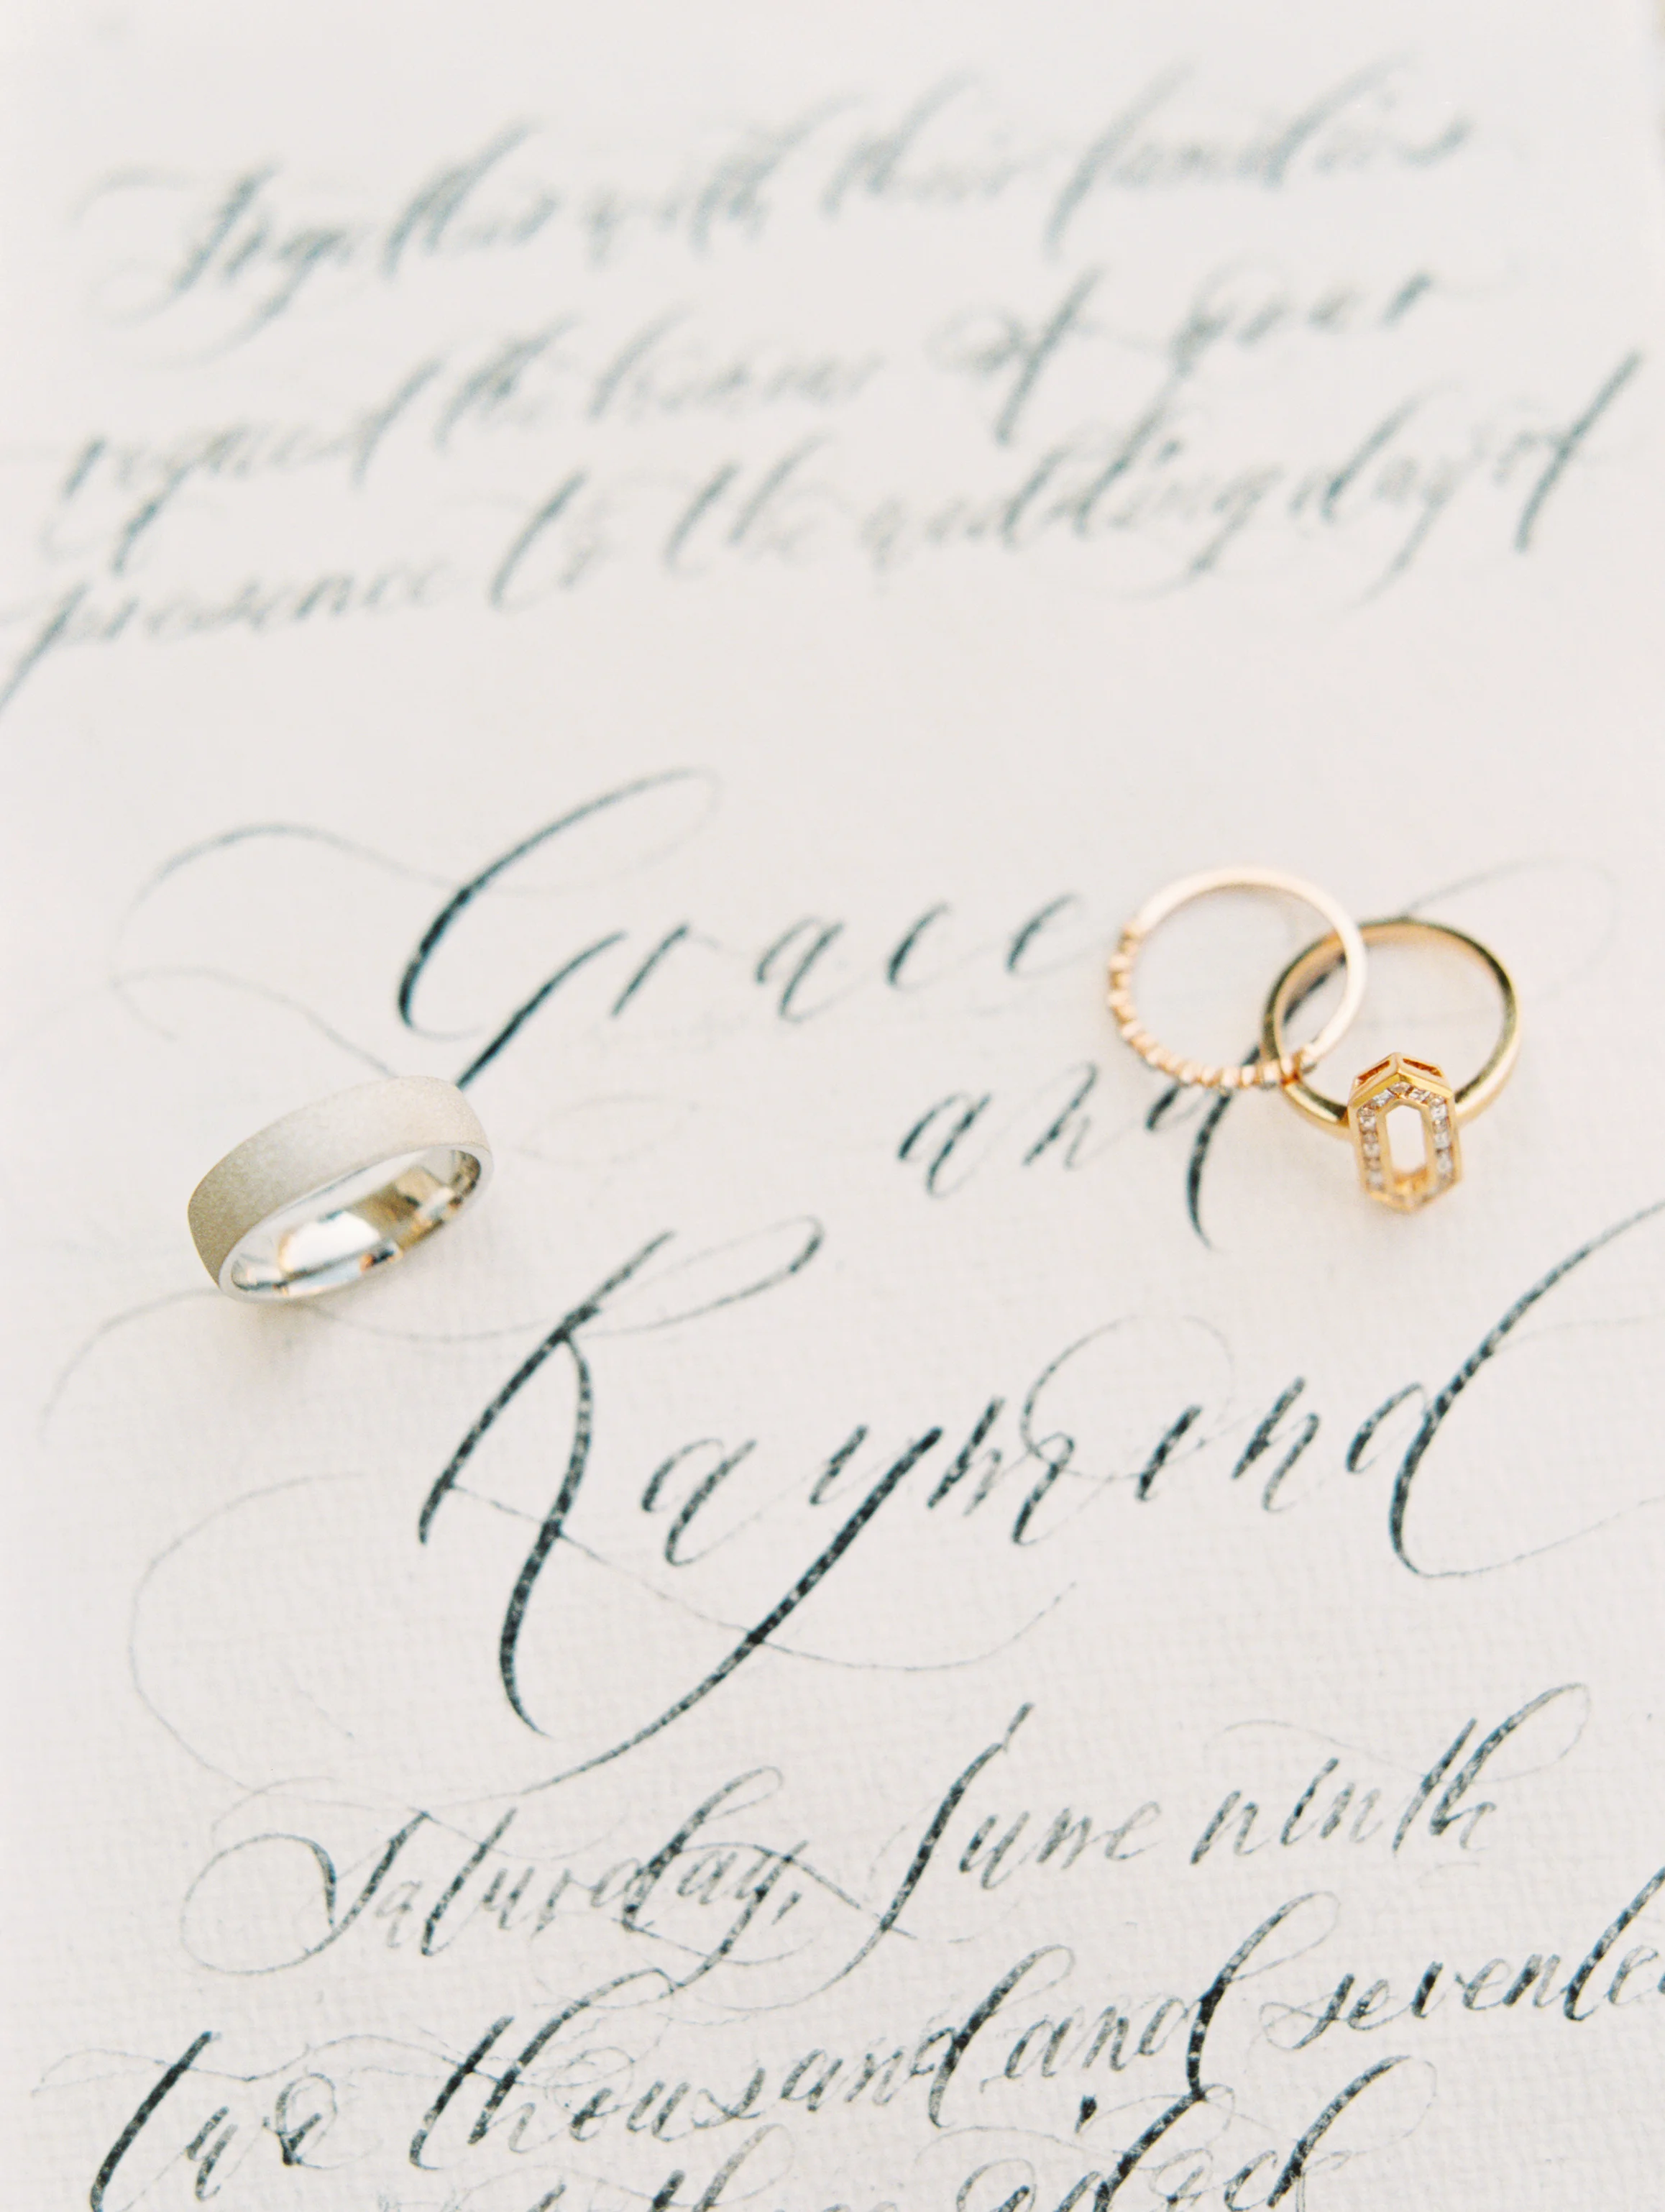 Together with their families
request the honor of your
presence to the wedding day of
Grace
and
Raymond
Saturday, June ninth
two thousand and sevente
three o'clock